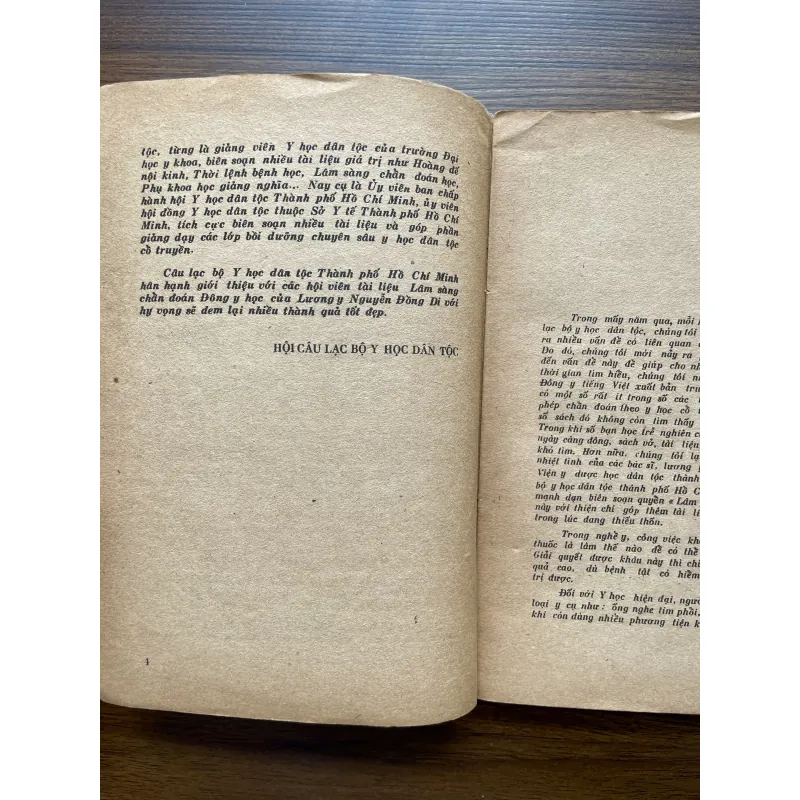 tộc, từng là giảng viên Y học dân tộc của trường Đại
học y khoa, biên soạn nhiều tài liệu giá trị như Hoàng đế
nội kinh, Thời lệnh bệnh học, Lâm sàng chẩn đoán học,
Phụ khoa học giảng nghĩa... Nay cụ là Ủy viên ban chấp
hành hội Y học dân tộc Thành phố Hồ Chí Minh, ủy viên
hội đồng Y học dân tộc thuộc Sở Y tế Thành phố Hồ Chí
Minh, tích cực biên soạn nhiều tài liệu và góp phần
giảng dạy các lớp bồi dưỡng chuyên sâu y học dân tộc
cổ truyền.
Câu lạc bộ Y học dân tộc Thành phố Hồ Chí Minh
hân hạnh giới thiệu với các hội viên tài liệu Lâm sàng
chẩn đoán Đông y học của Lương y Nguyễn Đồng Di với
hy vọng sẽ đem lại nhiều thành quả tốt đẹp.
HỘI CÂU LẠC BỘ Y HỌC DÂN TỘC
4
Trong mấy năm qua, mỗi
lạc bộ y học dân tộc, chúng tôi
ra nhiều vấn đề có liên quan
Do đó, chúng tôi mới nảy ra
đến vấn đề này để giúp cho
thời gian tìm hiểu, chúng tôi
Đông y tiếng Việt xuất bản
có một số rất ít trong số các
phép chẩn đoán theo y học cổ
số sách đó không còn tìm thấy
Trong khi số bạn học trẻ nghiên
ngày càng đông, sách vở, tài liệu
khó tìm. Hơn nữa, chúng tôi
nhiệt tình của các bác sĩ, lương
Viện y dược học dân tộc thành
bộ y học dân tộc thành phố Hồ
mạnh dạn biên soạn quyển « Lâm
này với thiện chí góp thêm tài
trong lúc đang thiếu thốn.
Trong nghề y, công việc
thuốc là làm thế nào để có thể
Giải quyết được khâu này thì
quả cao, dù bệnh tật có hiểm
trị được.
Đối với Y học hiện đại,
loại y cụ như : ống nghe tim phổi,
khi còn dùng nhiều phương tiện